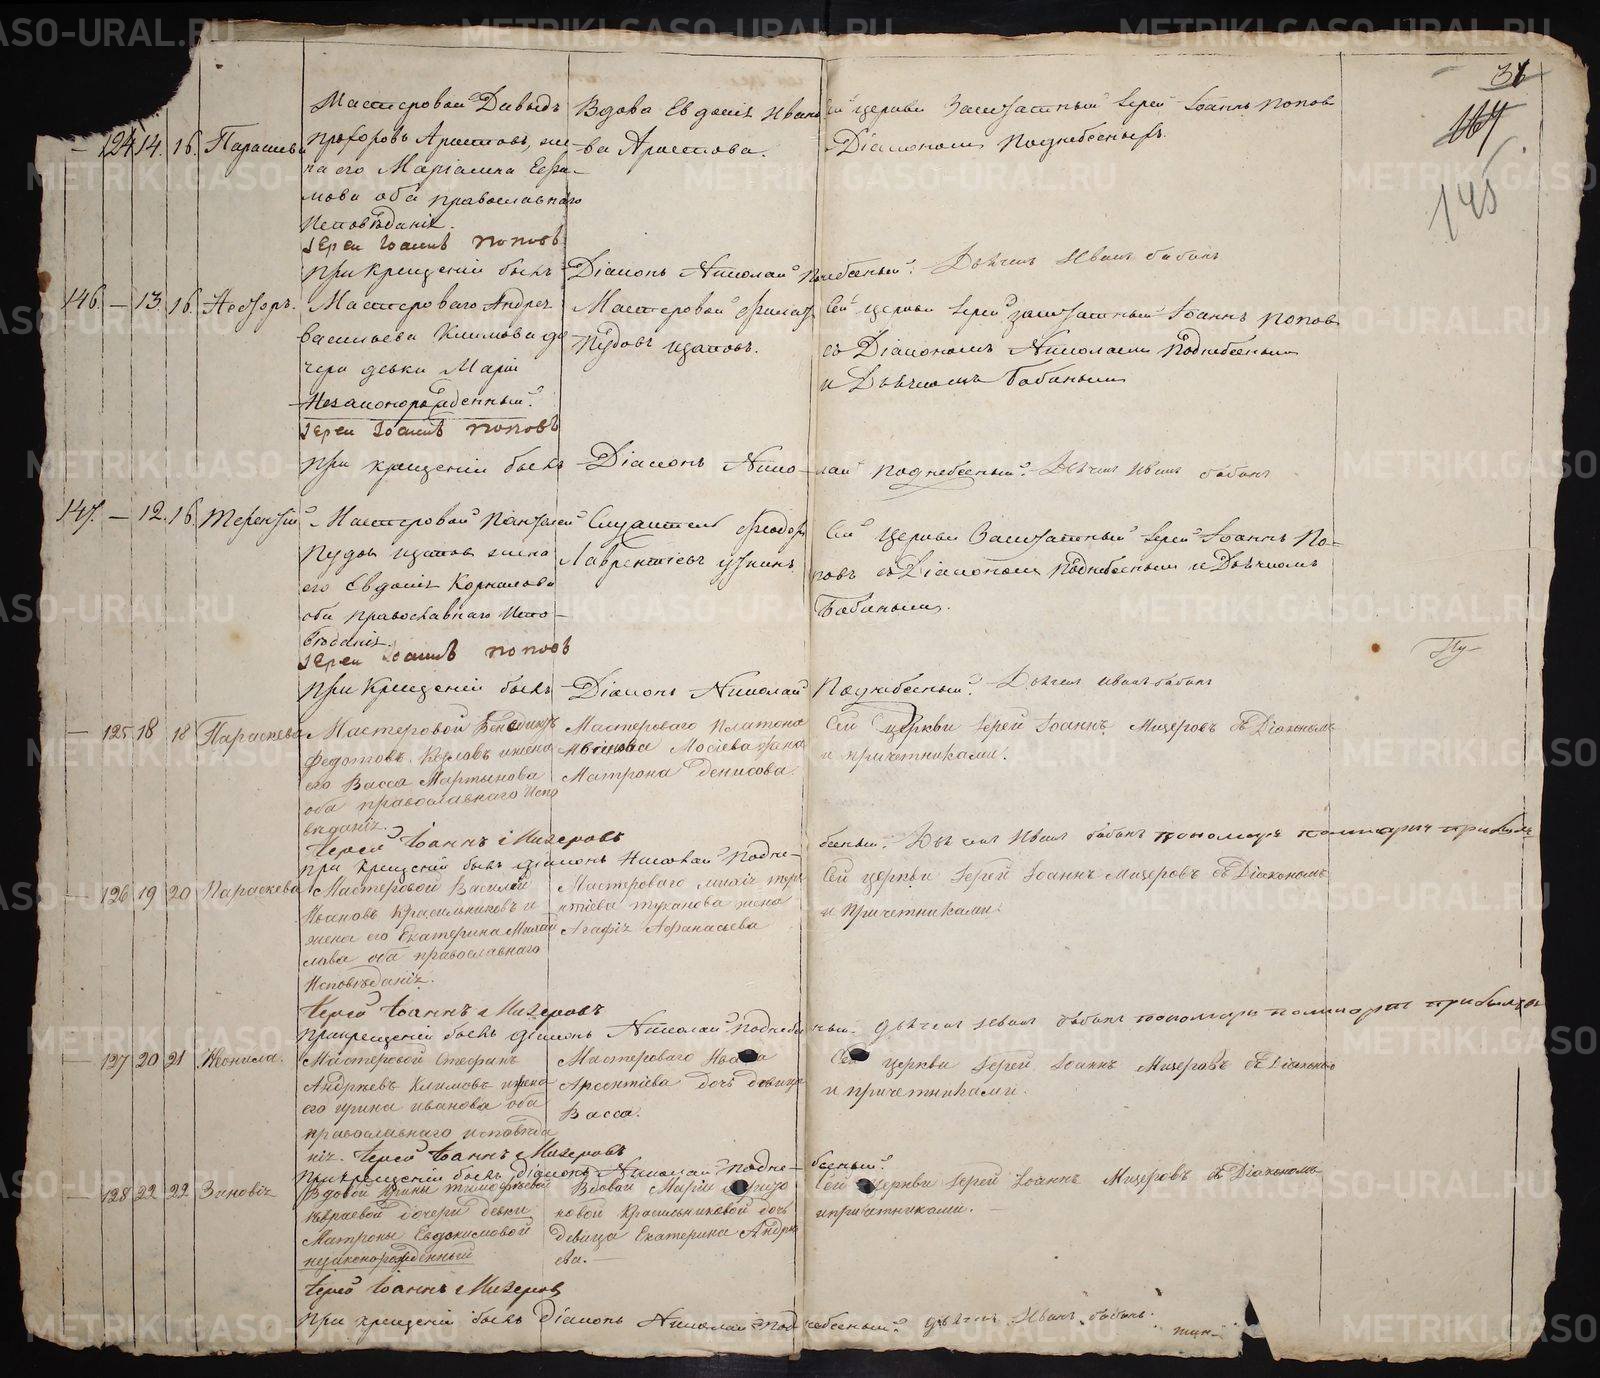 METRIKI.GASO-URAL.RU
31
164
145
— 124. 14. 16. Параскева
Мастеровой Давыдъ
Прохоровъ Аристовъ, же-
на его Маріамна Ефи-
мова оба православнаго
Исповѣданія.
Іерей Іоаннъ Поповъ
Вдова Евдокія Ивано
ва Аристова.
сей церкви Заштатный Іерей Іоаннъ Попов
Діакономъ Поднебеснымъ.
При крещеніи былъ Діаконъ Николай Поднебесный. Дьячекъ Иванъ Бабинъ
146. — 13. 16. Несторъ.
Мастероваго Андрея
Васильева Климова до
чери девки Маріи
Незаконорожденный.
Іерей Іоаннъ Поповъ
Мастеровой Филатъ
Пудовъ Щаповъ.
Сей церкви Іерей заштатный Іоаннъ Попов
съ Діакономъ Николаемъ Поднебеснымъ
и Дьячкомъ Бабинымъ
При крещеніи былъ Діаконъ Николай Поднебесный. Дьячекъ Иванъ Бабинъ
147. — 12. 16. Терентій
Мастеровой Пантелей
Пудов Щапов жена
его Евдокія Корнилова
оба православнаго Испо-
вѣданія.
Іерей Іоаннъ Поповъ
Служитель Феодоръ
Лаврентіевъ
Сей Церкви Заштатный Іерей Іоаннъ По-
повъ съ Діакономъ Поднебеснымъ и Дьячкомъ
Бабинымъ.
При Крещеніи былъ Діаконъ Николай Поднебесный. Дьячекъ Иванъ Бабинъ
— 125 18 18 Параскева
Мастеровой Бенедиктъ
Федотовъ Козловъ и жена
его Васса Мартынова
оба православнаго Испо
вѣданія.
Іерей Іоаннъ Мизеровъ
Мастероваго Платона
Иванова Мосіева жена
Матрона Денисова.
Сей Церкви Іерей Іоаннъ Мизеровъ съ Діакономъ
и причетниками.
При Крещеніи былъ діаконъ Николай Подне-
бесный. Дьячекъ Иванъ Бабинъ пономарь
— 126 19 20 Параскева
Мастеровой Василей
Ивановъ Красильниковъ и
жена его Екатерина Михай
лова оба православнаго
Исповѣданія.
Іерей Іоаннъ Мизеровъ
Мастероваго
жена
Агафія Афанасьева
Сей церкви Іерей Іоаннъ Мизеровъ съ Діакономъ
и Причетниками.
При крещеніи былъ діаконъ Николай Поднебесный. Дьячекъ Иванъ Бабинъ пономарь
— 127 20 21 Неонила.
Мастеровой Стефанъ
Андреевъ Климовъ и жена
его Ирина Иванова оба
православнаго исповѣда
нія. Іерей Іоаннъ Мизеровъ
Мастероваго Ивана
Арсентіева дочь девица
Васса.
Сей церкви Іерей Іоаннъ Мизеровъ съ Діакономъ
и причетниками.
При крещеніи былъ діаконъ Николай Подне-бесный.
— 128 22 22 Зиновія
Вдовой Ирины Тимофѣевой
дочери девки
Матроны Евдокимовой
незаконорожденный
Іерей Іоаннъ Мизеровъ
Вдовой Маріи
новой Красильниковой дочь
девица Екатерина Андре
ева.
Сей Церкви Іерей Іоаннъ Мизеровъ съ Діакономъ
и причетниками.
При крещеніи былъ Діаконъ Николай Поднебесный. дьячекъ Иванъ Бабинъ.